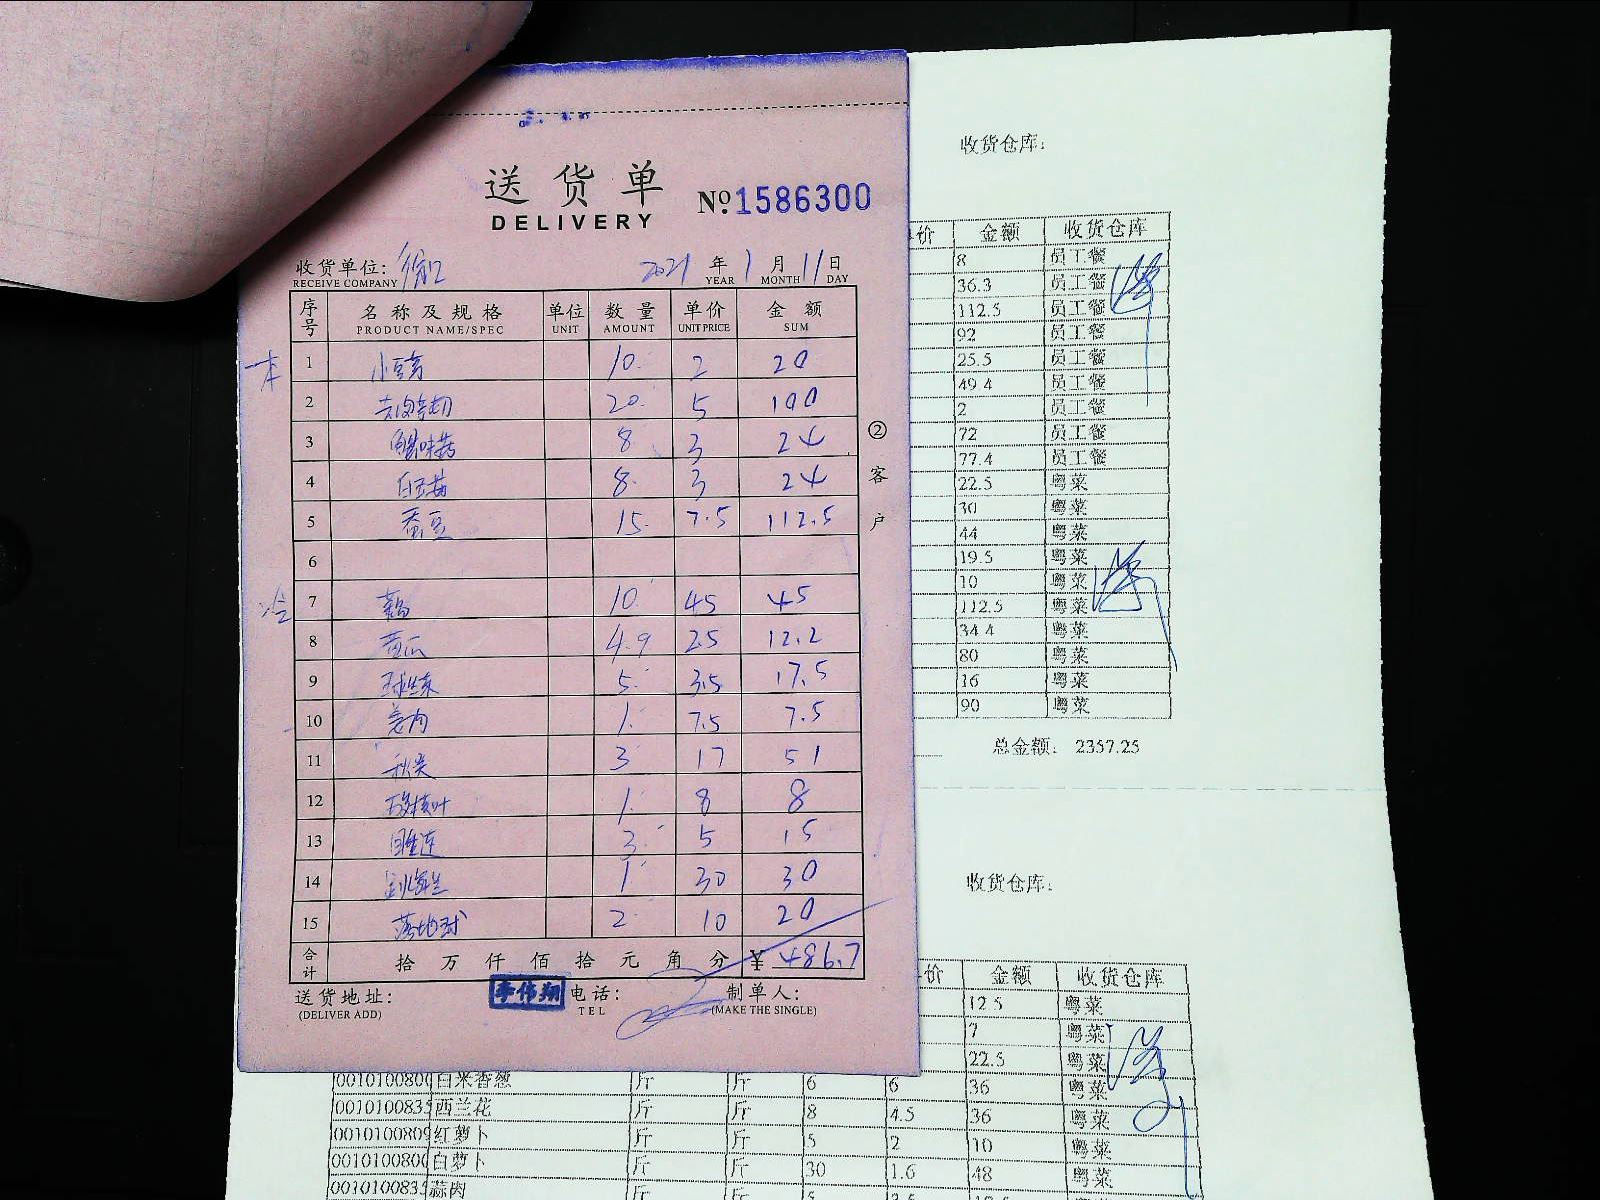 送货单
DELIVERY
No.1586300
收货单位:
RECEIVE COMPANY
2021 年 1 月 11 日
YEAR MONTH DAY
序号 名称及规格 单位 数量 单价 金额
PRODUCT NAME/SPEC UNIT AMOUNT UNIT PRICE SUM
1 10 2 20
2 20 5 100
3 8 3 24
4 白玉菇 8 3 24
5 蚕豆 15 7.5 112.5
6
冷
7 10 45 45
8 黄瓜 4.9 2.5 12.2
9 5 3.5 17.5
10 姜肉 1 7.5 7.5
11 3 17 51
12 1 8 8
13 3 5 15
14 1 30 30
15 2 10 20
合计 拾 万 仟 佰 拾 元 角 分 ¥ 486.7
② 客户
送货地址:
(DELIVER ADD)
李伟翔
电话:
TEL
制单人:
(MAKE THE SINGLE)
收货仓库:
价 金额 收货仓库
8 员工餐
36.3 员工餐
112.5 员工餐
92 员工餐
25.5 员工餐
49.4 员工餐
2 员工餐
72 员工餐
77.4 员工餐
22.5 粤菜
30 粤菜
44 粤菜
19.5 粤菜
10 粤菜
112.5 粤菜
34.4 粤菜
80 粤菜
16 粤菜
90 粤菜
总金额: 2357.25
收货仓库:
价 金额 收货仓库
12.5 粤菜
7 粤菜
22.5 粤菜
斤 斤 6 6 36 粤菜
0010100835 西兰花 斤 斤 8 4.5 36 粤菜
0010100809 红萝卜 斤 斤 5 2 10 粤菜
001010080 白萝卜 斤 斤 30 1.6 48 粤菜
001010083 蒜肉 斤 斤